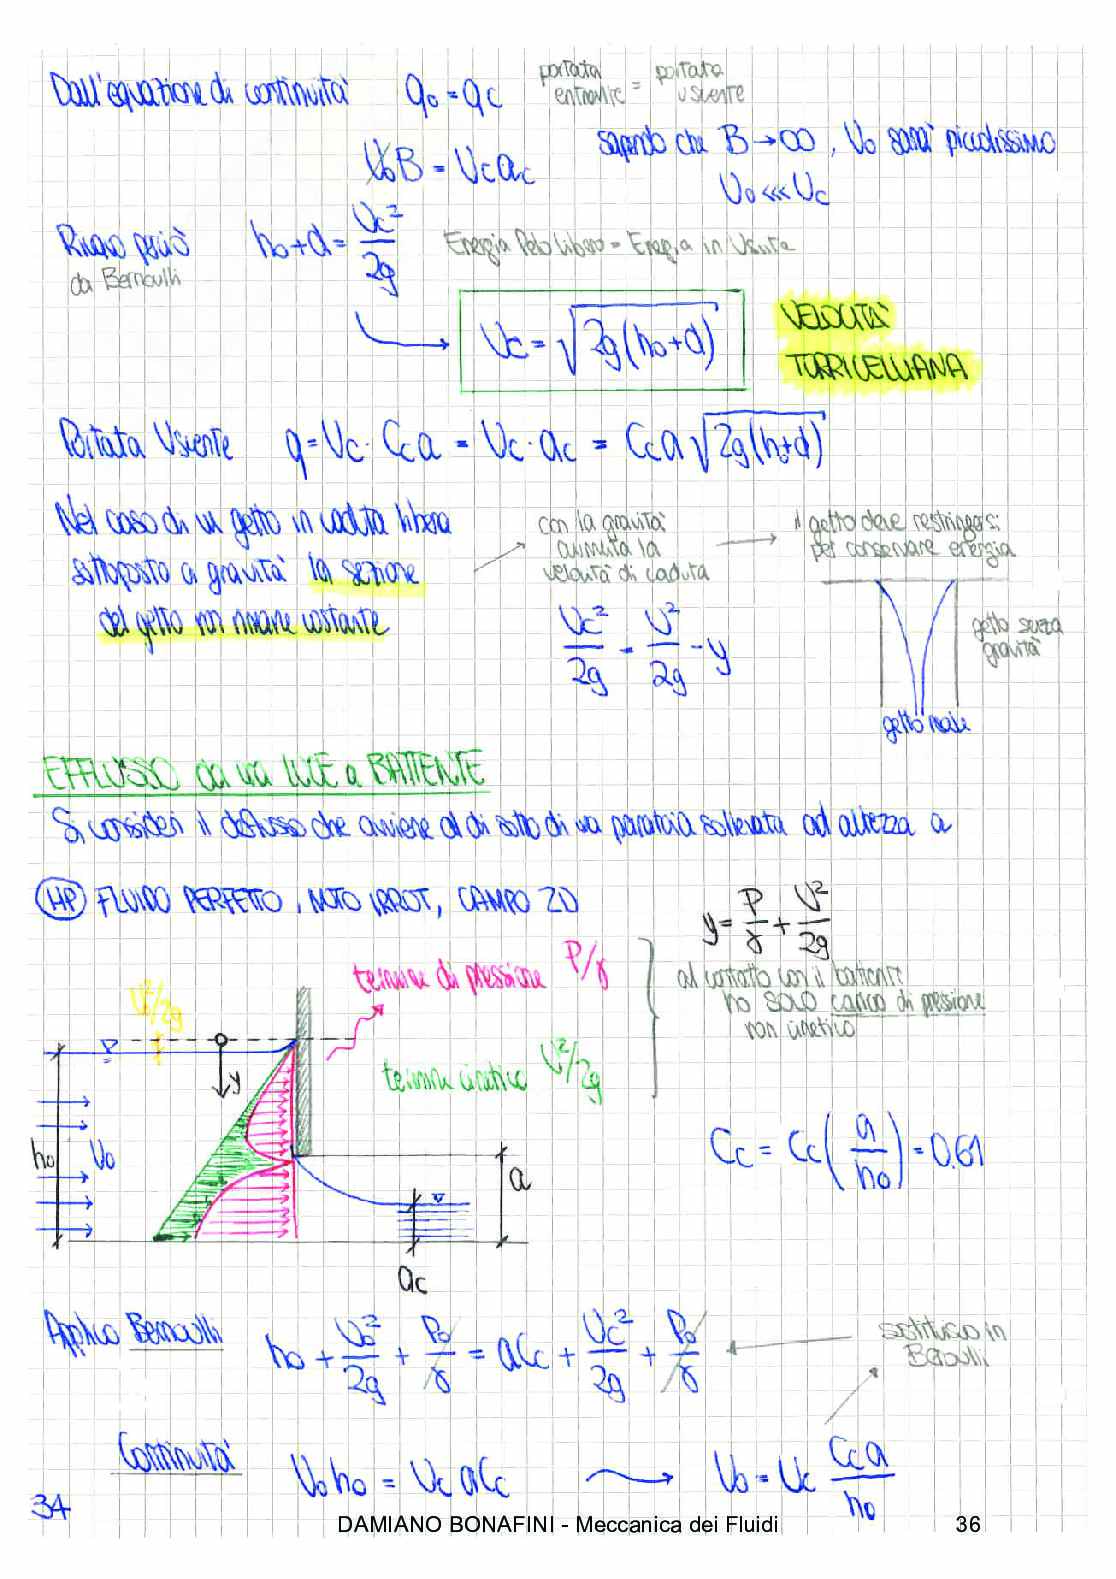 Dall'equazione di continuità q₀ = qc portata entrante = portata uscente
sapendo che B→∞, U₀ sarà piccolissimo
U₀B = Uc ac
U₀ <<< Uc
Ricavo perciò h₀+d = Uc²/2g Energia Pelo libero = Energia in Uscita
da Bernoulli
Uc = √2g(h₀+d) VELOCITÀ
TORRICELLIANA
Portata Uscente q = Uc · Cc a = Uc · ac = Cc a √2g(h₀+d)
Nel caso di un getto in caduta libera
sottoposto a gravità la sezione
del getto non rimane costante
con la gravità
aumenta la
velocità di caduta
il getto deve restringersi
per conservare energia
Uc²/2g = U²/2g - y
getto senza
gravità
getto reale
EFFLUSSO da una LUCE a BATTENTE
Si consideri il deflusso che avviene al di sotto di una paratoia sollevata ad altezza a
HP FLUIDO PERFETTO, MOTO IRROT, CAMPO 2D
y = P/γ + U²/2g
termine di pressione P/γ
al contatto con il battente
ho SOLO carico di pressione
non cinetico
U₀²/2g
termine cinetico U²/2g
y
h₀ U₀
a
ac
Cc = Cc(a/h₀) = 0.61
Applico Bernoulli h₀ + U₀²/2g + P₀/γ = aCc + Uc²/2g + P₀/γ
sostituisco in
Bernoulli
Continuità U₀h₀ = Uc aCc → U₀ = Uc Cc a/h₀
34
DAMIANO BONAFINI - Meccanica dei Fluidi 36